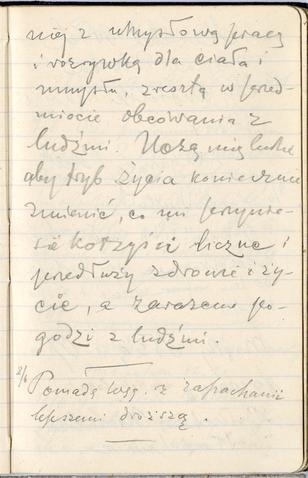 niej z umysłową pracą
i rozrywką dla ciała i
umysłu, zresztą w przed-
miocie obcowania z
ludźmi. Uczą mię ludzie
aby tryb życia koniecznie
zmienić, co mi przynie-
sie korzyści liczne i
przedłuży zdrowie i ży-
cie, a zarazem po-
godzi z ludźmi.
2/6 Pomadę z zapachami
lepszemi droższą.